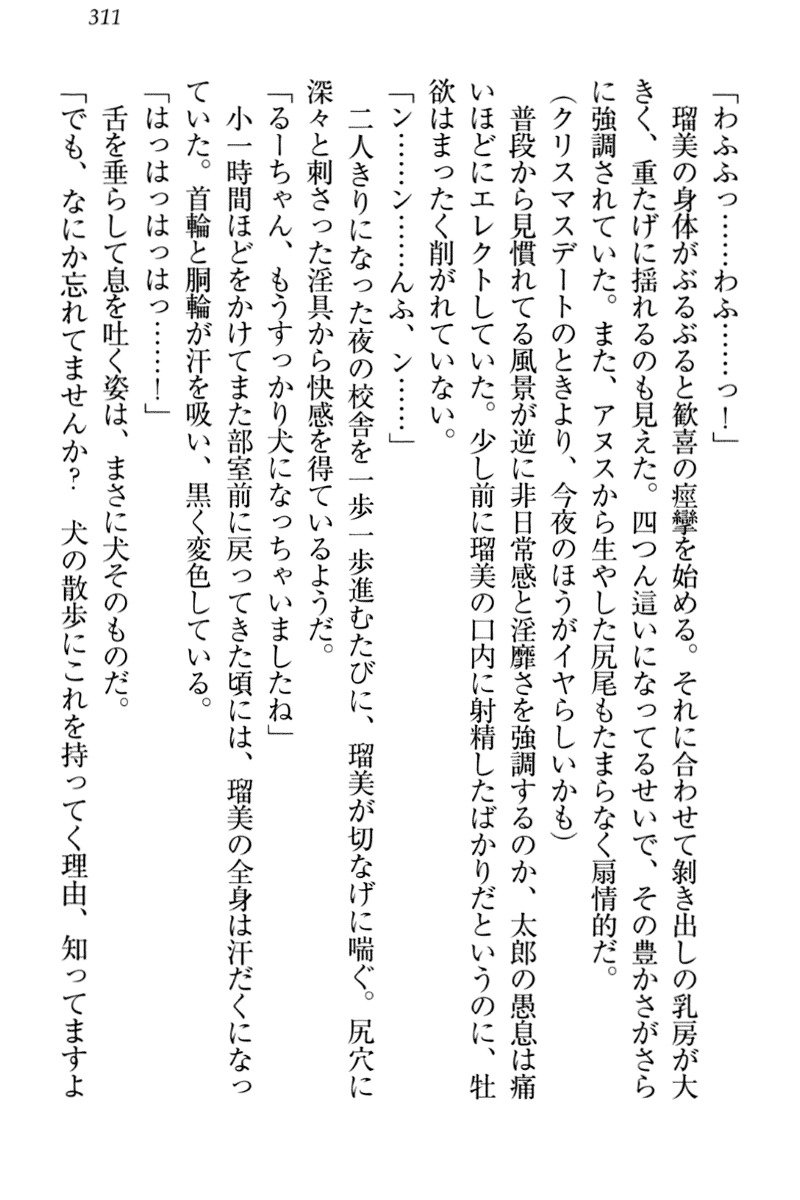 311
「わふふっ……わふ……っ！」
　瑠美の身体がぶるぶると歓喜の痙攣を始める。それに合わせて剝き出しの乳房が大
きく、重たげに揺れるのも見えた。四つん這いになってるせいで、その豊かさがさら
に強調されていた。また、アヌスから生やした尻尾もたまらなく扇情的だ。
（クリスマスデートのときより、今夜のほうがイヤらしいかも）
　普段から見慣れてる風景が逆に非日常感と淫靡さを強調するのか、太郎の愚息は痛
いほどにエレクトしていた。少し前に瑠美の口内に射精したばかりだというのに、牡
欲はまったく削がれていない。
「ン……ン……んふ、ン……」
　二人きりになった夜の校舎を一歩一歩進むたびに、瑠美が切なげに喘ぐ。尻穴に
深々と刺さった淫具から快感を得ているようだ。
「るーちゃん、もうすっかり犬になっちゃいましたね」
　小一時間ほどをかけてまた部室前に戻ってきた頃には、瑠美の全身は汗だくになっ
ていた。首輪と胴輪が汗を吸い、黒く変色している。
「はっはっはっはっ……！」
　舌を垂らして息を吐く姿は、まさに犬そのものだ。
「でも、なにか忘れてませんか？　犬の散歩にこれを持ってく理由、知ってますよ